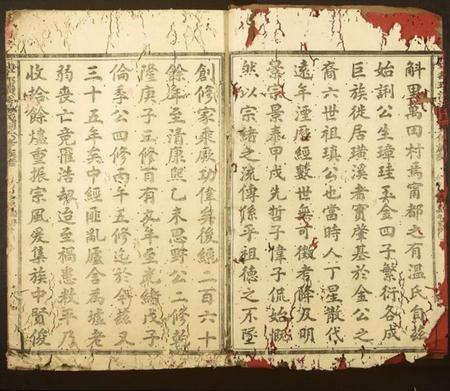 斛里萬田村為甯都之有温氏自茲
始訓公生璋珪玉金四子繁衍各成
巨族徙居璜溪者實肇基於金公之
裔六世祖瑱公也當時人丁星散代
遠年湮歷經數世無可徵者降及明
景宗景泰甲戌先哲子偉子侃始慨
然以宗緒之流傳係乎祖德之不墜
創修家乘厥功偉矣後經二百六十
餘年至清康熙乙未思野公二修
隆庚子五修首有九年至光緒戊子
倫季公四修丙午五修迄於今茲又
三十五年矣中經匪亂廬舍為墟老
弱喪亡竞罹浩劫迨至禍患救平乃
收拾餘燼重振宗風爰集族中賢俊